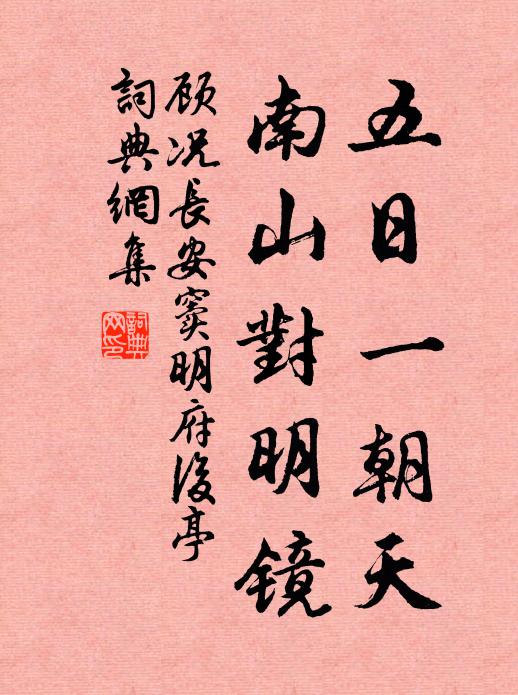 五日一朝天
南山對明镜
顾况長安竇明府後亭
詞典網集
詞典网印